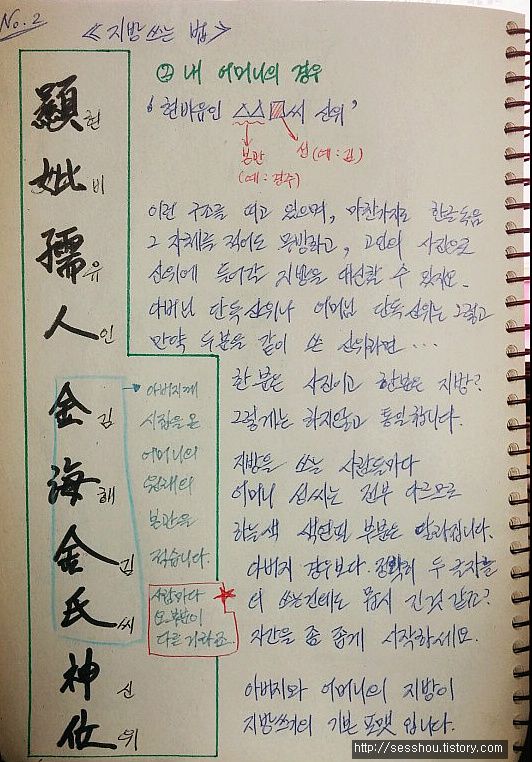 No. 2
《지방 쓰는 법》
② 내 어머니의 경우
'현비유인 △△ □씨 신위'
본관
(예: 경주)
성 (예: 김)
顯 현
妣 비
孺 유
人 인
金 김
海 해
金 김
氏 씨
神 신
位 위
이런 구조를 띠고 있으며, 마찬가지로 한글독음
그 자체를 적어도 무방하고, 고인의 사진으로
신위에 들어갈 지방을 대신할 수 있지요.
아버님 단독신위나 어머님 단독신위는 그렇고
만약 두분을 같이 쓴 신위라면 …
한분은 사진이고 한분은 지방?
그렇게는 하지않고 통일합니다.
아버지께
시집을 온
어머니의
원래의
본관을
적습니다.
사람마다
요 부분이
다른 거라죠
지방을 쓰는 사람들마다
어머니 성씨는 전부 다르므로
하늘색 색연필 부분은 달라집니다.
아버지 경우보다 정확히 두 글자를
더 쓰는건데도 무지 긴것 같죠?
자간을 좀 좁게 시작하세요.
아버지와 어머니의 지방이
지방쓰기의 기본 포맷 입니다.
http://sesshou.tistory.com